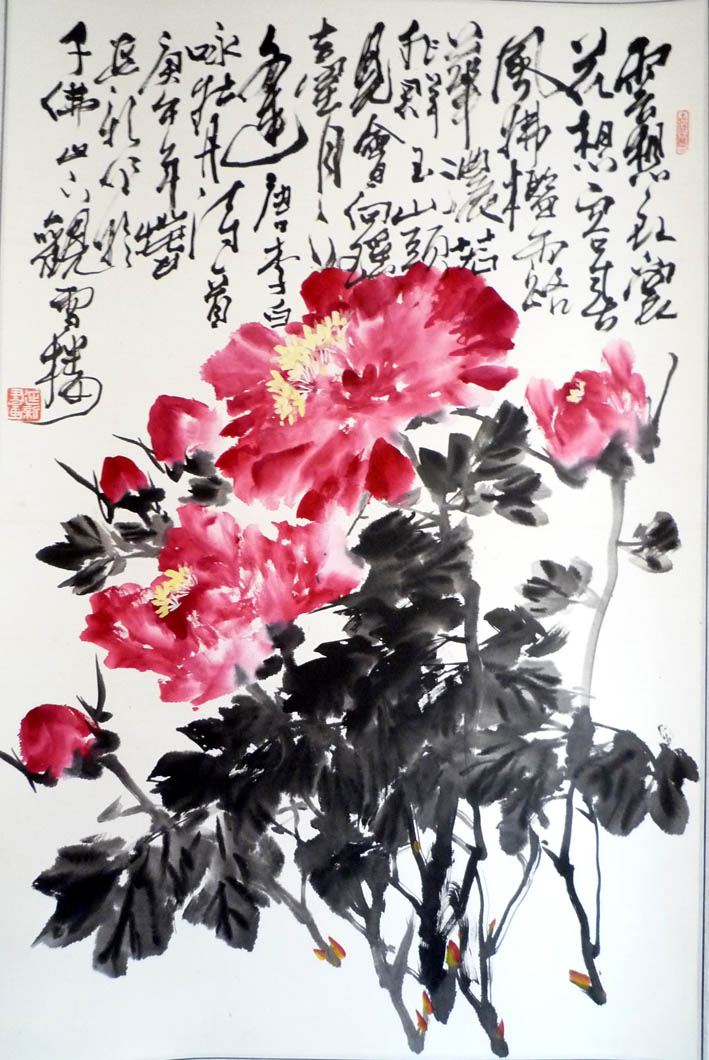 雲想衣裳
花想容春
風拂檻露
華濃若
非群玉山頭
見會向瑤
臺月下
逢唐李白
咏牡丹诗一首
庚午年
延新於
千佛山下觀雪樓